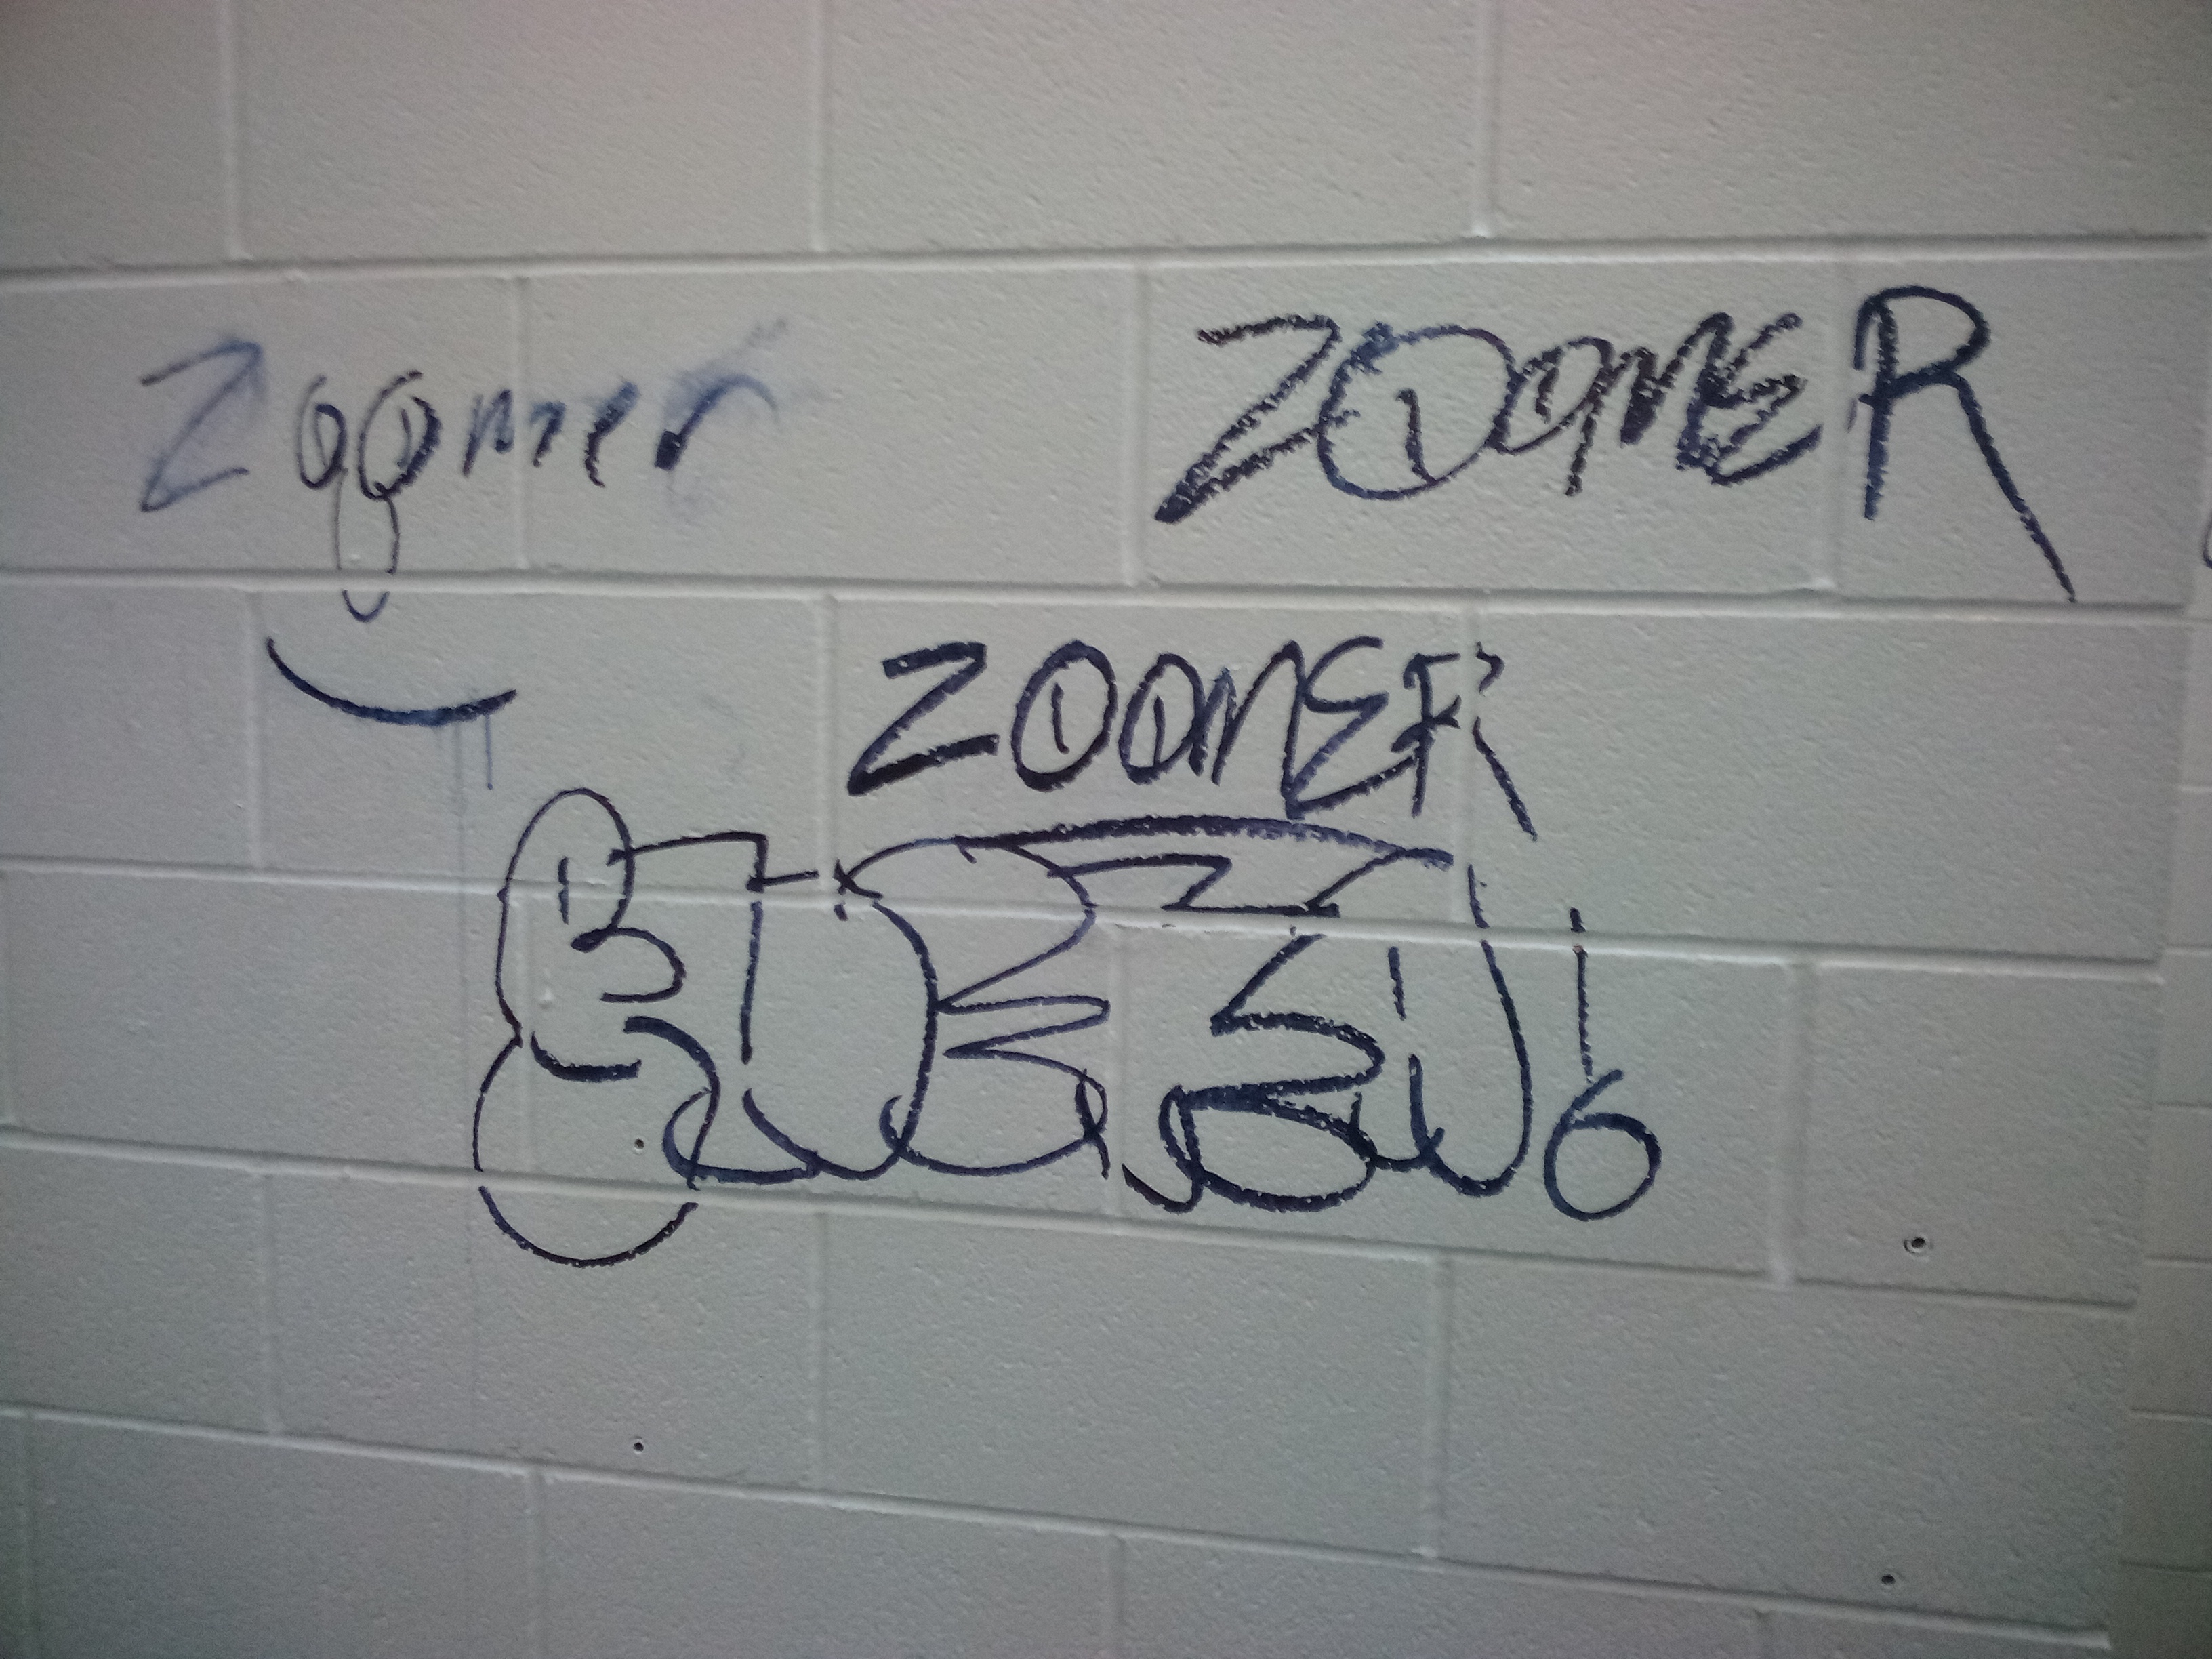 Zoomer
ZOOMER
ZOOMER